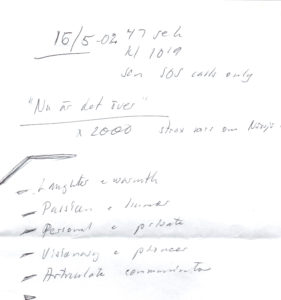 16/5-02 47 sek
kl 1019
som SOS calls only
"Nu är det över"
x 2000 strax norr om
- Laughter & warmth
- Passion & humor
- Personal & private
- Visionary & pioneer
- Articulate communicator